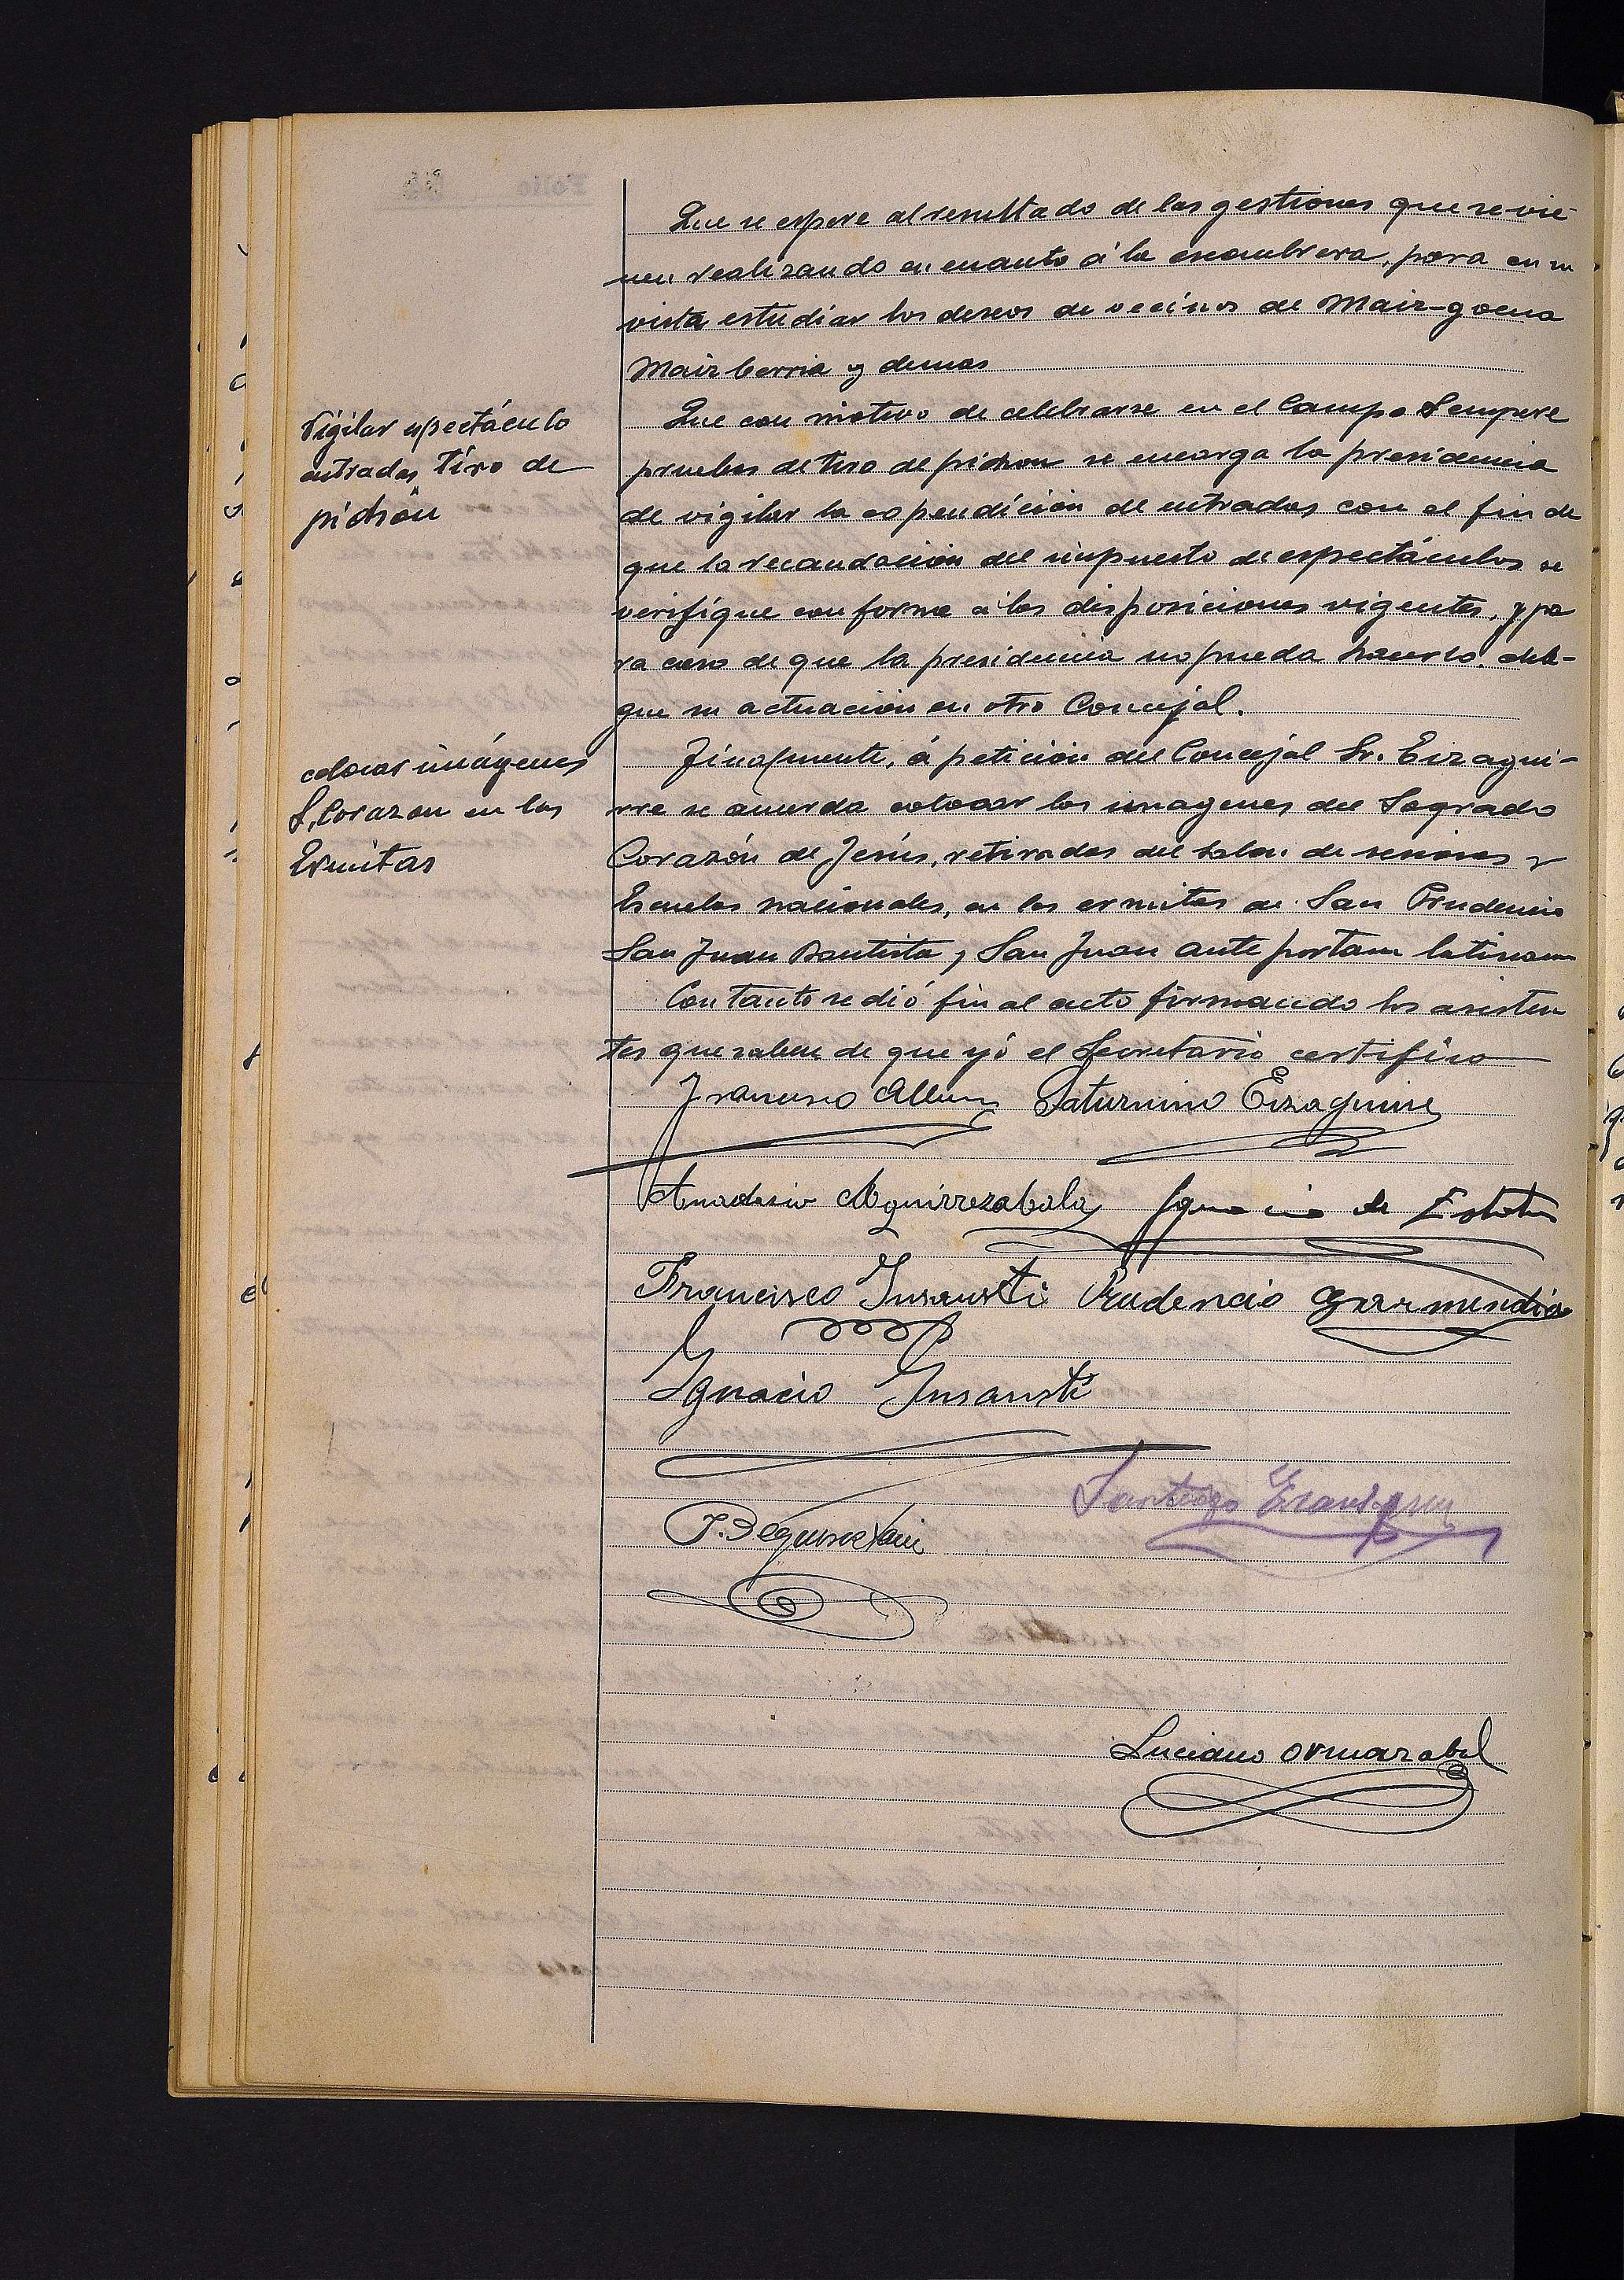 Que se espere al resultado de las gestiones que se vie-
nen realizando en cuanto á la escombrera, para en su
vista estudiar los deseos de vecinos de Maiz-goena
Maizberria y demas
Vigilar espectáculo
entradas tiro de
pichón
Que con motivo de celebrarse en el Campo Sempere
pruebas de tiro de pichon se encarga la presidencia
de vigilar la espendición de entradas con el fin de
que la recaudación del impuesto de espectáculos se
verifique conforme á las disposiciones vigentes, y pa
ra caso de que la presidencia no pueda hacerlo, dele-
gue su actuación en otro Concejal.
colocar imágenes
S. Corazon en las
Ermitas
Finalmente, á petición del Concejal Sr. Eizagui-
rre se acuerda colocar las imagenes del Sagrado
Corazón de Jesús, retiradas del salon de sesiones y
Escuelas nacionales, en las ermitas de San Prudencio
San Juan Bautista y San Juan ante portam latinam
Con tanto se dió fin al acto firmando los asisten
tes que saben de que yó el Secretario certifico
Francisco Saturnino Eizaguirre
Anadario Aguirrezabala Ignacio de
Francisco Insausti Prudencio Garmendia
Ignacio Insausti
Santiago
J. Beguiristain
Luciano Ormazabal